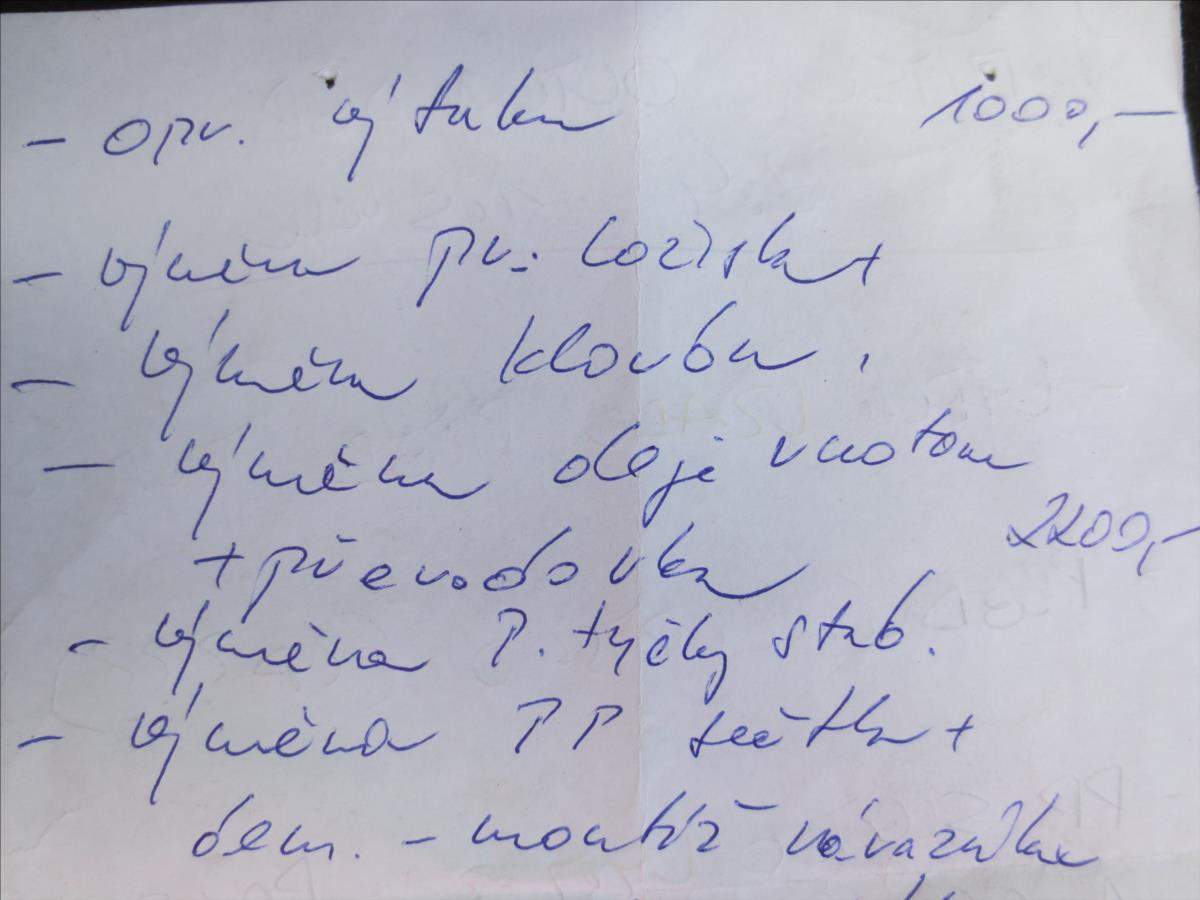 - opv. výfuku 1000,-
- výměna pr. ložiska +
- výměna kloubu,
- výměna oleje v motoru
+ převodovka 2200,-
- výměna P. tyčky stab.
- výměna PP světla +
dem. - montáž nárazníku